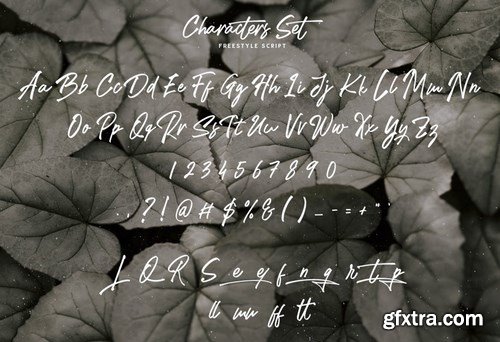 Characters Set
FREESTYLE SCRIPT
Aa Bb Cc Dd Ee Ff Gg Hh Ii Jj Kk Ll Mm Nn
Oo Pp Qq Rr Ss Tt Uu Vv Ww Xx Yy Zz
1 2 3 4 5 6 7 8 9 0
. , ? ! @ # $ % & ( ) _ - = + " '
L Q R S e e f n g r t p
ll mn ff tt
gfxtra.com